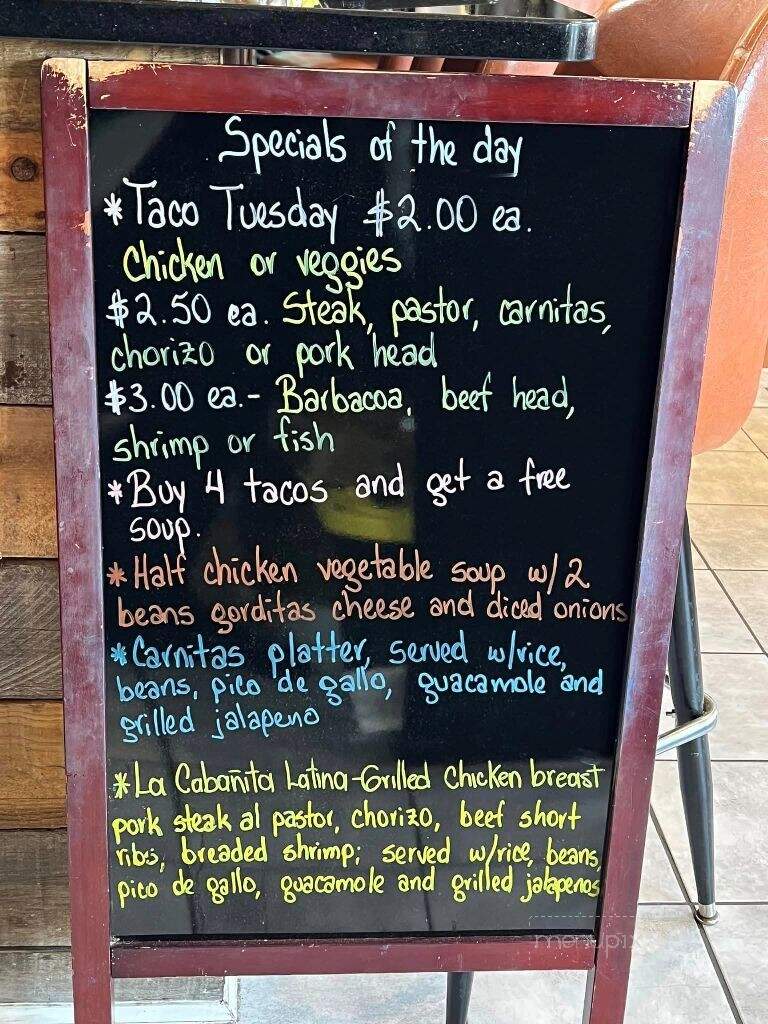 Specials of the day
*Taco Tuesday $2.00 ea.
Chicken or veggies
$2.50 ea. Steak, pastor, carnitas,
chorizo or pork head
$3.00 ea.- Barbacoa, beef head,
shrimp or fish
*Buy 4 tacos and get a free
soup.
*Half chicken vegetable soup w/2
beans gorditas cheese and diced onions
*Carnitas platter, served w/rice,
beans, pico de gallo, guacamole and
grilled jalapeno
*La Cabañita Latina-Grilled Chicken breast
pork steak al pastor, chorizo, beef short
ribs, breaded shrimp; served w/rice, beans,
pico de gallo, guacamole and grilled jalapenos
menupix